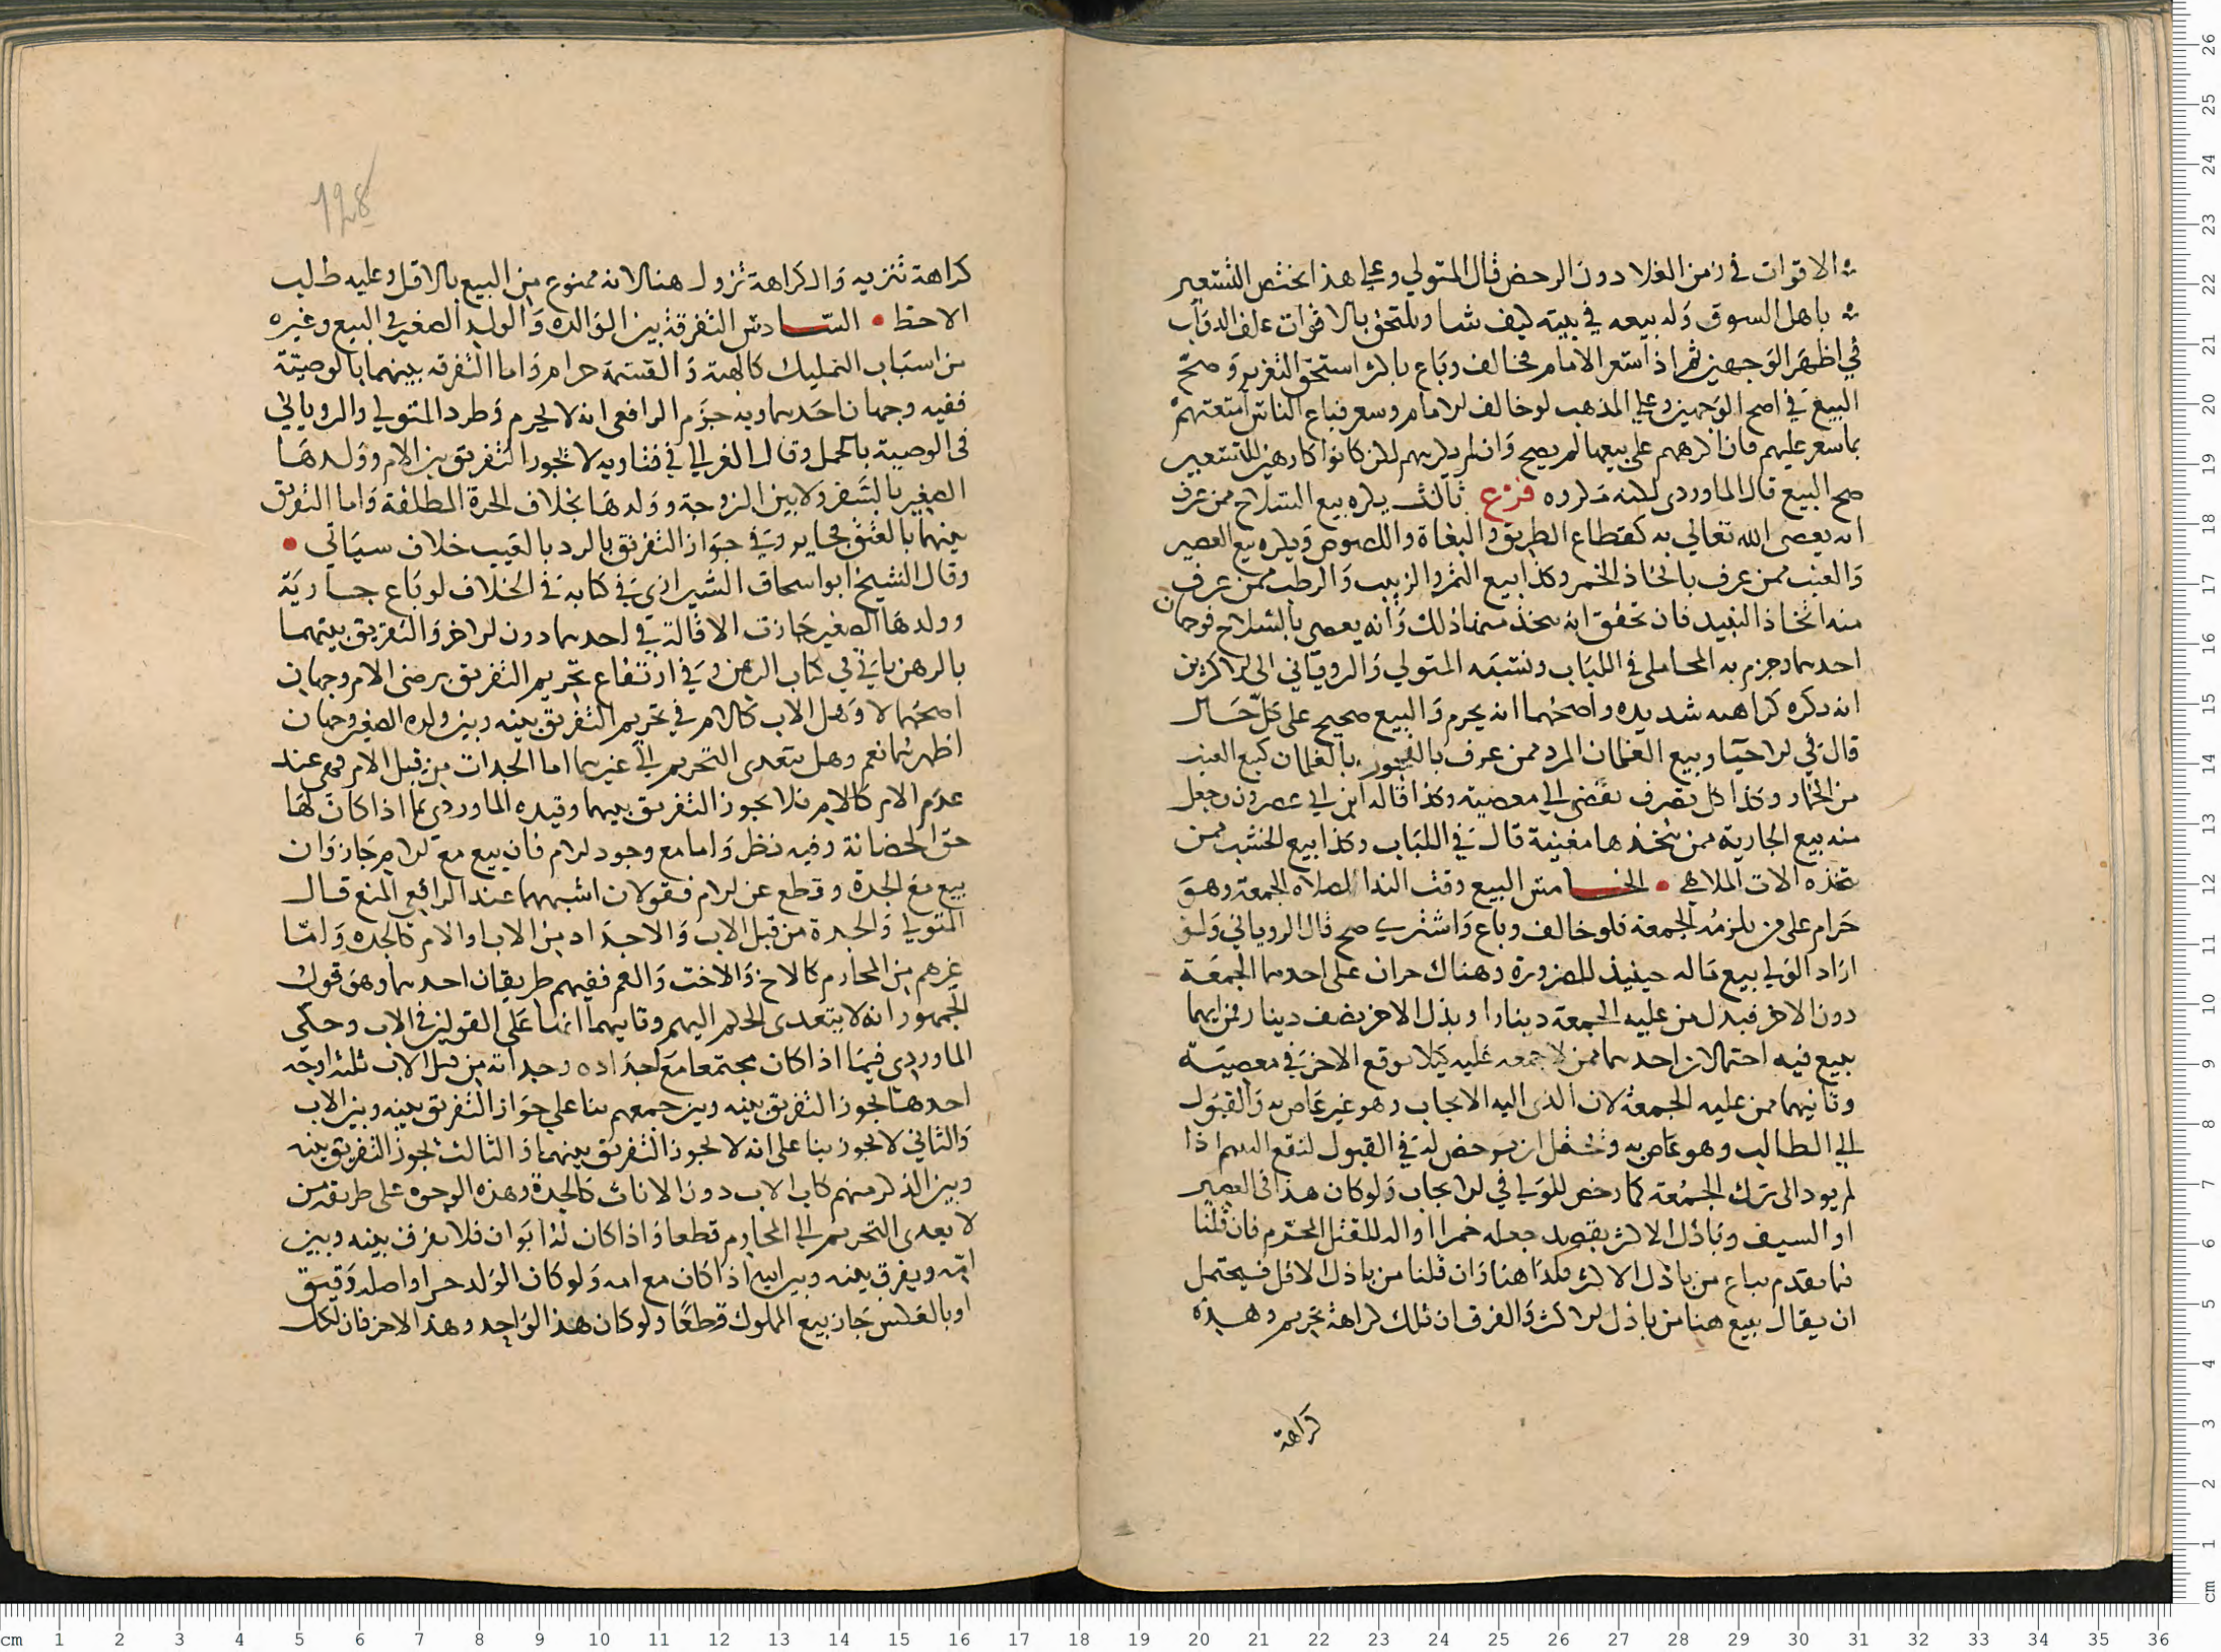 الاقوات في زمن الغلا دون الرخص قال المتولي وعلي هذا يختص التسعير
باهل السوق وله بيعه في بيته كيف شا ويلتحق بالاقوات علف الدواب
في اظهر الوجهين ثم اذا سعر الامام فخالف وباع باكثر استحق التعزير وصح
البيع في اصح الوجهين وعلي المذهب لو خالف الامام وسعر فباع الناس امتعتهم
بما سعر عليهم فان اكرههم على بيعها لم يصح وان لم يكرههم لكن كانوا كارهين للتسعير
صح البيع قال الماوردى لكنه مكروه فرع ثالث يكره بيع السلاح ممن عرف
انه يعصى الله تعالي به كقطاع الطريق والبغاة واللصوص ويكره بيع العصير
والعنب ممن عرف باتخاذ الخمر وكذا بيع التمر والزبيب والرطب ممن عرف
منه اتخاذ النبيذ فان تحقق انه يتخذ منها ذلك وانه يعصى بالسلاح فوجهان
احدهما وجزم به المحاملى في اللباب ونسبه المتولي والروياني الى الاكثرين
انه يكره كراهه شديده واصحهما انه يحرم والبيع صحيح على كل حال
قال في الاحيا وبيع الغلمان المرد ممن عرف بالفجور بالغلمان كبيع العنب
من الخمار وكذا كل تصرف يفضي الي معصيته وكذا قاله ابن ابي عصرون وجعل
منه بيع الجارية ممن يتخذها مغنية قال في اللباب وكذا بيع الخشب ممن
يتخذه الات الملاهي • الخامس البيع وقت الندا لصلاه الجمعة وهو
حرام على من يلزمه الجمعة فلو خالف وباع واشترى صح قال الروياني ولو
اراد الولي بيع ماله حينيذ للضرورة وهناك حران على احدهما الجمعة
دون الاخر فبذل من عليه الجمعة دينارا وبذل الاخر نصف دينار فمن ايهما
يبيع فيه احتمالان احدهما ممن لا جمعه عليه كيلا يوقع الاخر في معصية
وثانيهما ممن عليه الجمعة لان الذى اليه الايجاب وهو غير عاص به والقبول
الي الطالب وهو عاص به ويحتمل ان يرخص له في القبول لنفع اليتيم اذا
لم يود الى ترك الجمعة كما رخص للولي في الايجاب ولو كان هذا في العصير
او السيف وباذل الاكثر يقصد جعله خمرا او اله للقتل المحترم فان قلنا
فيما تقدم يباع من باذل الاكثر فكذا هنا وان قلنا من باذل الاقل فيحتمل
ان يقال يبيع هنا من باذل الاكثر والفرق ان تلك كراهة تحريم وهذه
كراهة
128
كراهة تنزيه والكراهة تزول هنا لانه ممنوع من البيع بالاقل وعليه طلب
الاحظ • السادس التفرقة بين الوالده والولد الصغير في البيع وغيره
من اسباب التمليك كالهبة والقسمة حرام واما التفرقه بينهما بالوصية
ففيه وجهان احدهما وبه جزم الرافعى انه لا يحرم وطرد المتولي والروياني
في الوصية بالحمل وقال الغزالي في فتاويه لا يجوز التفريق بين الام وولدها
الصغير بالسفر ولا بين الزوجة وولدها بخلاف الحرة المطلقة واما التفريق
بينهما بالعتق فجايز وفي جواز التفريق بالرد بالعيب خلاف سياتي •
وقال الشيخ ابو اسحاق الشيرازي في كتابه في الخلاف لو باع جارية
وولدها الصغير جازت الاقالة في احدهما دون الاخر والتفريق بينهما
بالرهن ياتي في كتاب الرهن وفي ارتفاع تحريم التفريق برضى الام وجهان
اصحهما لا وهل الاب كالام في تحريم التفريق بينه وبين ولده الصغير وجهان
اظهرهما نعم وهل يتعدى التحريم الي غيرهما اما الجدات من قبل الام فهى عند
عدم الام كالام فلا يجوز التفريق بينهما وقيده الماوردي بما اذا كان لها
حق الحضانة وفيه نظر واما مع وجود الام فان بيع مع الام جاز وان
بيع مع الجدة وقطع عن الام فقولان اشبههما عند الرافعى المنع قال
المتولي والجدة من قبل الاب والاجداد من الاب او الام كالجده واما
غيرهم من المحارم كالاخ والاخت والعم ففيهم طريقان احدهما وهو قول
الجمهور انه لا يتعدى الحكم اليهم وثانيهما انها على القولين في الاب وحكى
الماوردي فيما اذا كان مجتمعا مع اجداده وجداته من قبل الاب ثلثه اوجه
احدها يجوز التفريق بينه وبين جميعهم بنا علي جواز التفريق بينه وبين الاب
والثاني لا يجوز بنا على انه لا يجوز التفريق بينهما والثالث يجوز التفريق بينه
وبين الذكر منهم كاب الاب دون الاناث كالجدة وهذه الوجوه على طريقة من
لا يعدى التحريم الي المحارم قطعا واذا كان له ابوان فلا يفرق بينه وبين
امه ويفرق بينه وبين ابيه اذا كان مع امه ولو كان الولد حرا واصله رقيق
او بالعكس جاز بيع المملوك قطعا ولو كان هذا لواحد وهذا لاخر فان لكل